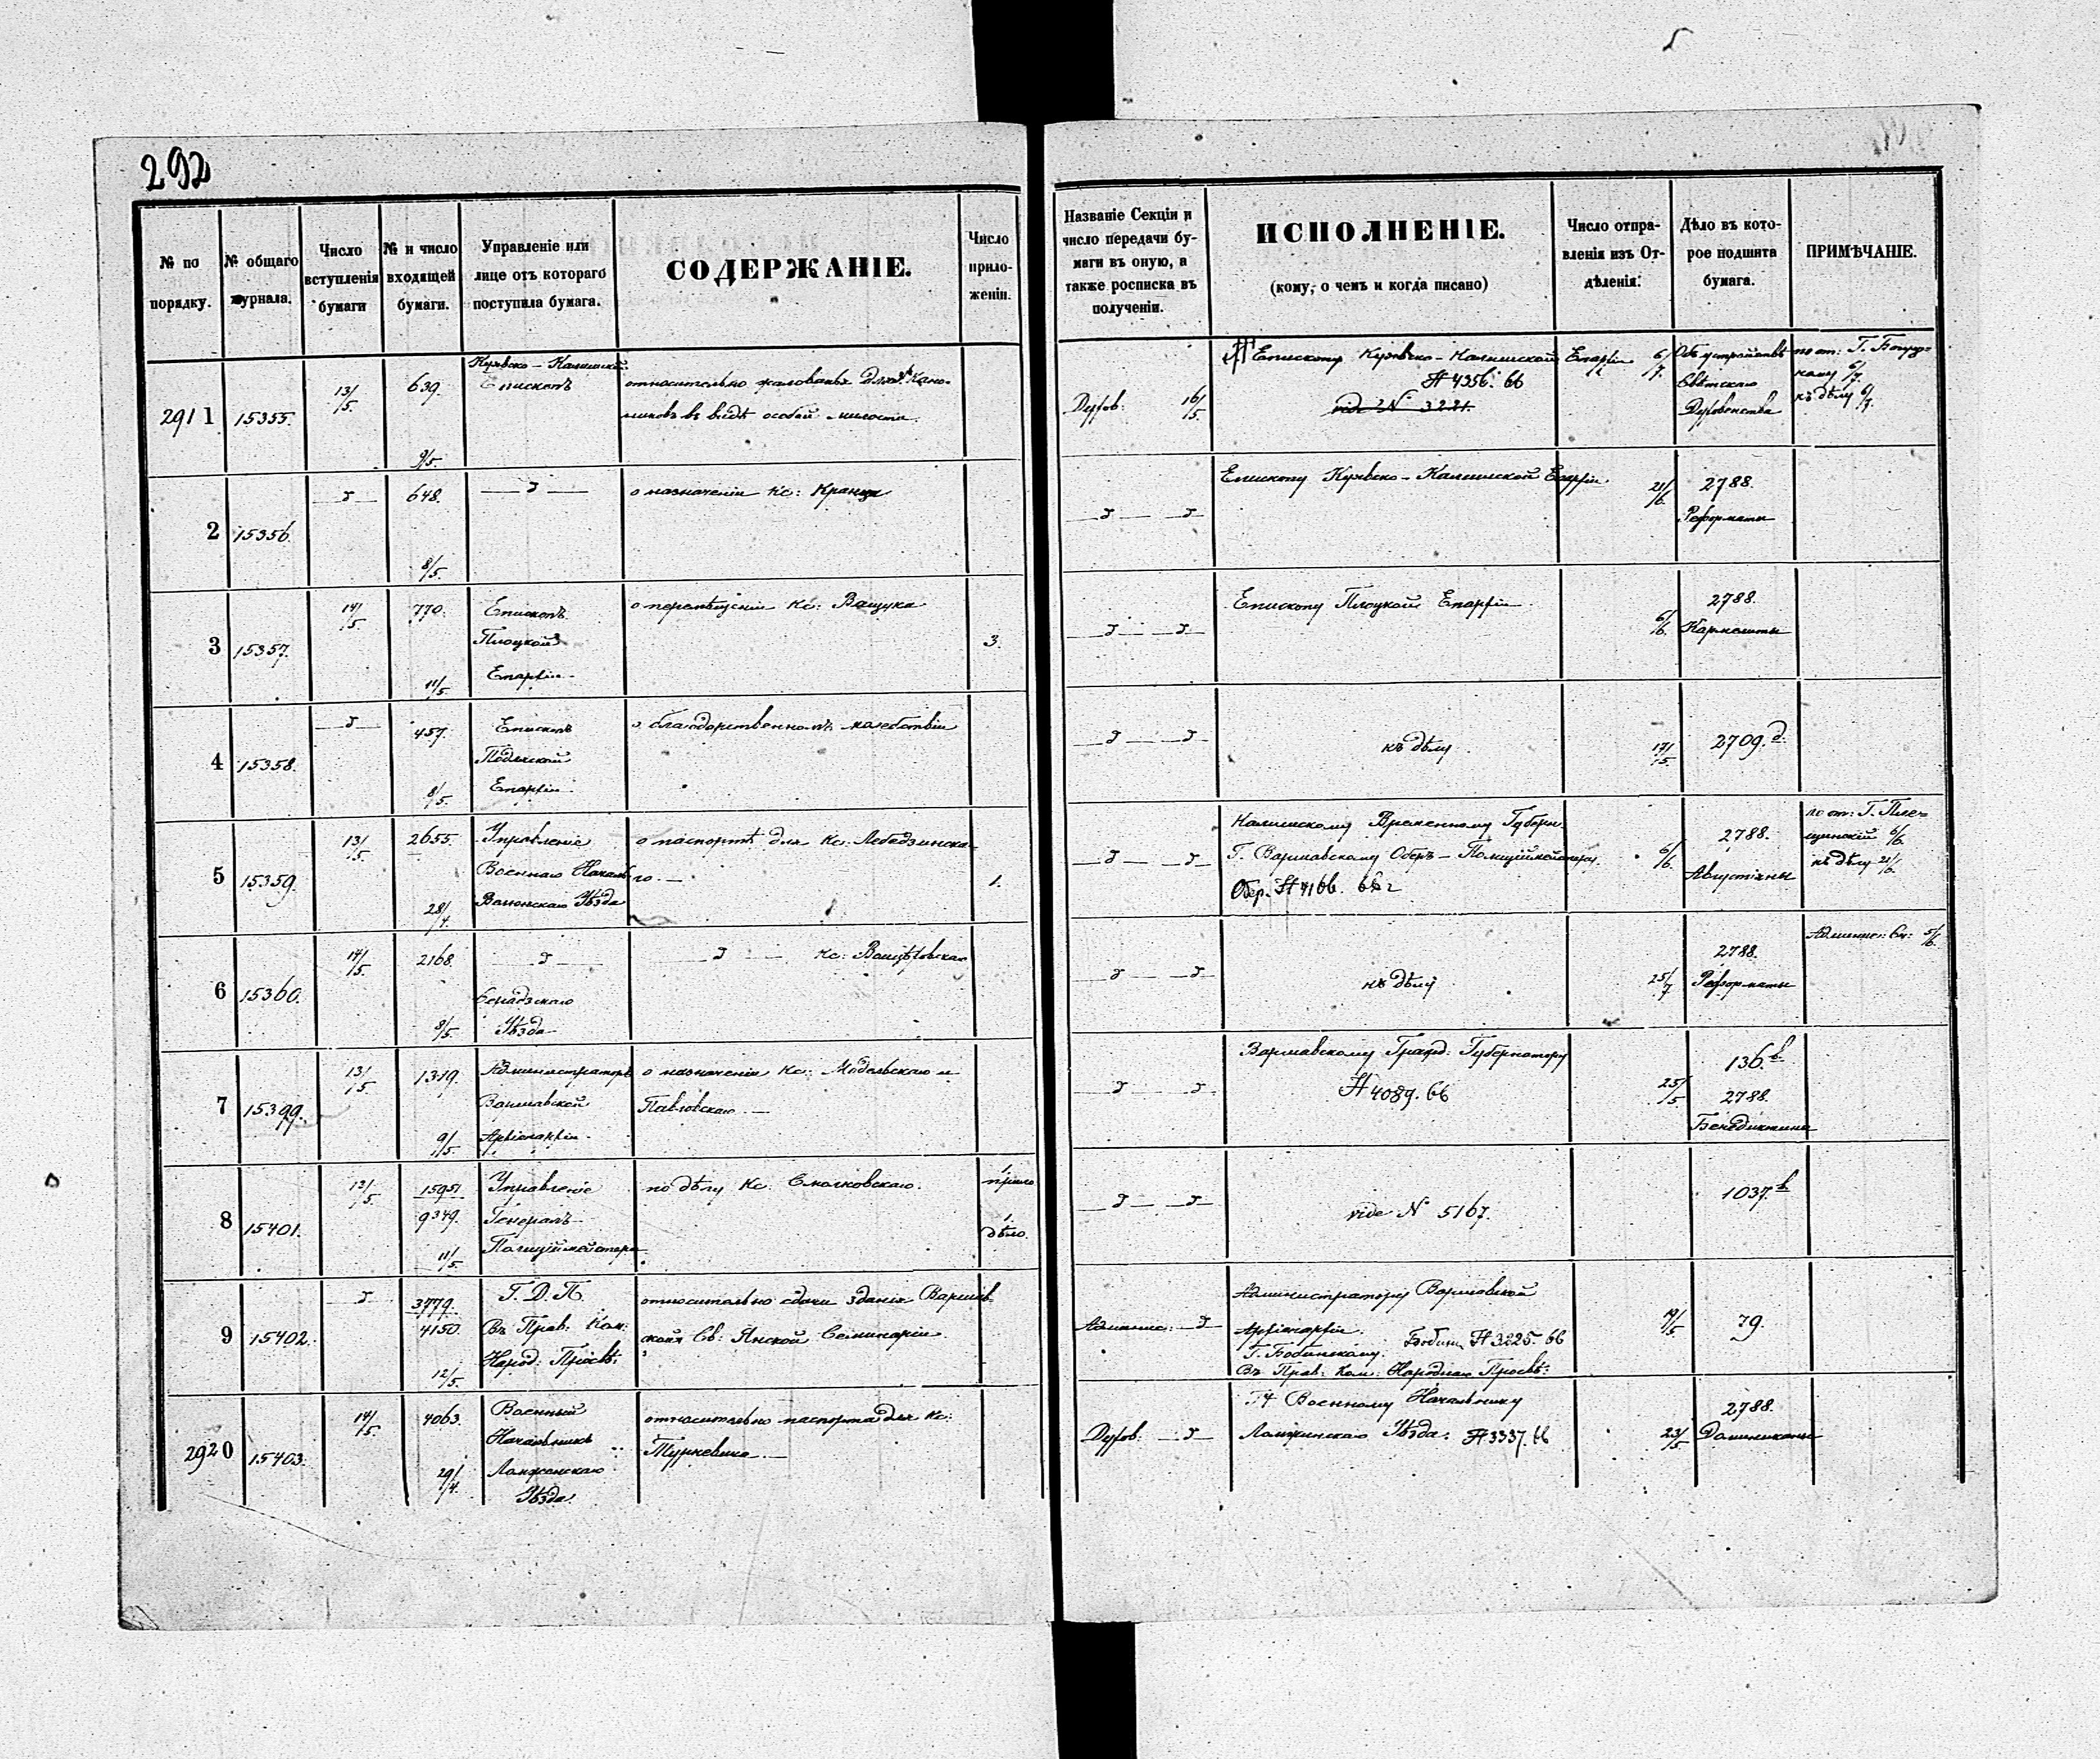 292
№ по порядку.
№ общаго журнала.
Число вступленія бумаги
№ и число входящей бумаги.
Управленіе или лице отъ котораго поступила бумага.
СОДЕРЖАНІЕ.
Число прило-
женій.
Названіе Секціи и
число передачи бу-
маги въ оную, а
также росписка въ
полученіи.
ИСПОЛНЕНІЕ.
(кому, о чемъ и когда писано)
Число отпра-
вленія изъ От-
дѣленія.
Дѣло въ кото-
рое подшита
бумага.
ПРИМѢЧАНІЕ.
2911 15355. 13/5. 639. 9/5.
Куявско-Калишской
Епископъ
относительно жалованья Кано-
никовъ въ видѣ особой милости.
Духов: 16/5.
Епископу Куявско-Калишской Епархіи 6/7.
№ 4356. 66
vide № 3221.
Объ устройствѣ
Свѣтскаго
Духовенства
къ дѣлу 6/7.
2 15356. 648. 8/5.
о назначеніи Кс: Кранца
Епископу Куявско-Калишской Епархіи. 21/6.
2788.
Реформаты
3 15357. 14/5. 770. 11/5.
Епископъ
Плоцкой
Епархіи
о перемѣщеніи Кс: Ващука
3.
Епископу Плоцкой Епархіи 6/6.
2788.
Кармелиты
4 15358. 457. 8/5.
Епископъ
Подляской
Епархіи
о благодарственномъ молебствіи
къ дѣлу. 17/5.
2709.д.
5 15359. 13/5. 2655. 28/4.
Управленіе
Военнаго Началь
Велюнскаго Уѣзда
о паспортѣ для Кс: Лебедзинска-
го.
1.
Калишскому Временному Губерн.
Г. Варшавскому Оберъ-Полиціймейстеру.
Обер. № 4166. 66 г
6/6.
2788.
Августіяны
къ дѣлу 21/6.
6 15360. 14/5. 2168. 8/5.
Уѣзда
къ дѣлу 25/7
2788.
Реформаты
5/6.
7 15399. 13/5. 1319. 9/5.
Администраторъ
Варшавской
Архіепархіи
о назначеніи Кс: Модельскаго и
Павловскаго.
Варшавскому Гражд: Губернатору
№ 4089. 66
25/5
136.b
2788.
Бенедиктины
8 15401. 13/5. 15951 9349. 11/5.
Управленіе
Генералъ
Полиціймейстера
по дѣлу Кс: Смолковскаго.
1 прило
1. дѣло.
vide № 5167.
1037.b
9 15402. 3779. 4150. 12/5.
Г. Д. П.
Въ Прав: Ком:
Народ: Просвѣ:
относительно сдачи зданія Варшав-
ской Св: Янской Семинаріи.
Админис:
Администратору Варшавской
Архіепархіи.
Г. Бобинскому. Бобин. № 3225. 66
Въ Прав: Ком: Народнаго Просвѣ:
19/5
79.
2920 15403. 14/5. 4063. 29/4.
Военный
Начальникъ
Ломженскаго
Уѣзда
относительно паспорта для Кс:
Туркевича.
Духов.
Военному Начальнику
Ломжинскаго Уѣзда. № 3337. 66
23/5
2788.
Доминиканы